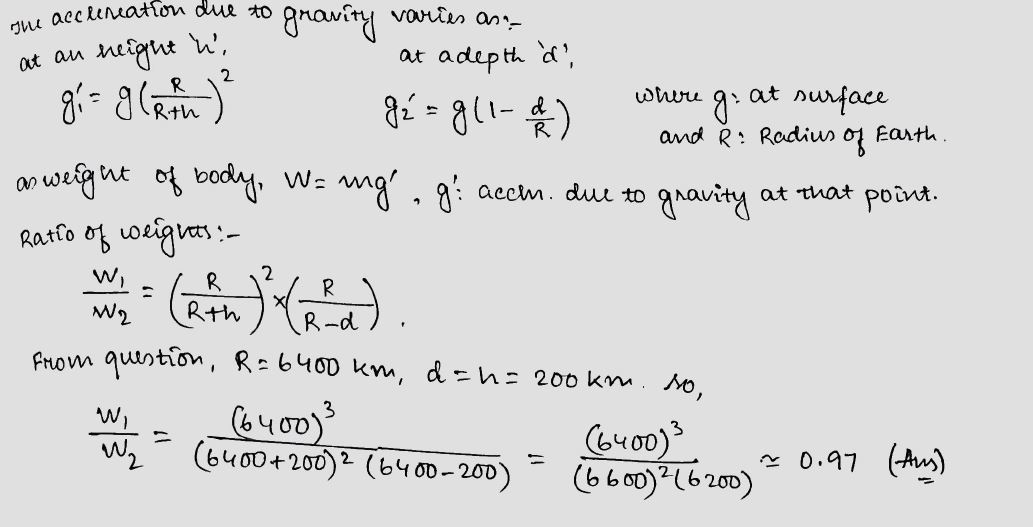 The acclereation due to gravity varies as:-
at an height 'h', at a depth 'd',
g₁' = g(R/R+h)² g₂' = g(1 - d/R) where g: at surface
and R: Radius of Earth.
as weight of body, W = mg', g': accln. due to gravity at that point.
Ratio of weights:-
W₁/W₂ = (R/R+h)² × (R/R-d).
From question, R = 6400 km, d = h = 200 km. so,
W₁/W₂ = (6400)³/(6400+200)² (6400-200) = (6400)³/(6600)²(6200) ≃ 0.97 (Ans)